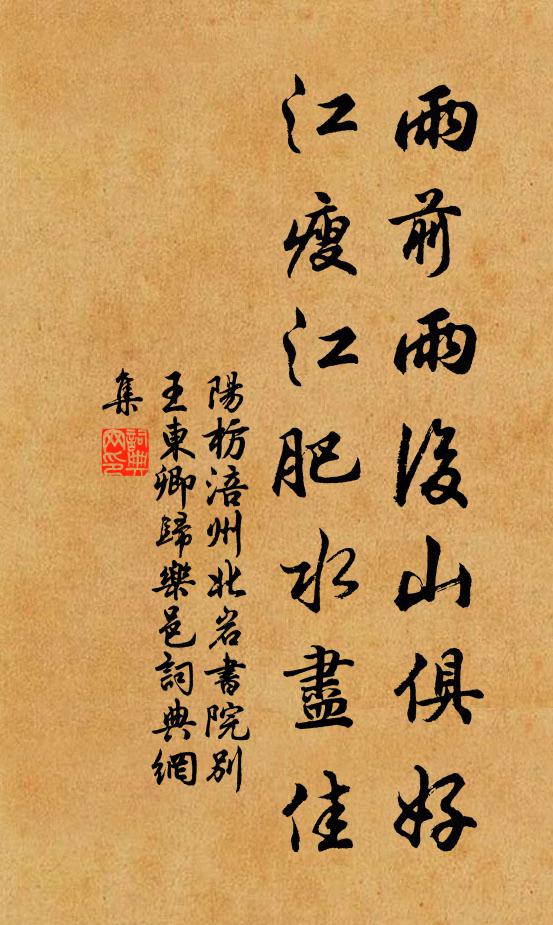 雨前雨後山俱好
江瘦江肥水盡佳
陽枋涪州北岩書院別
王東卿歸樂邑詞典網
集
詞典網印